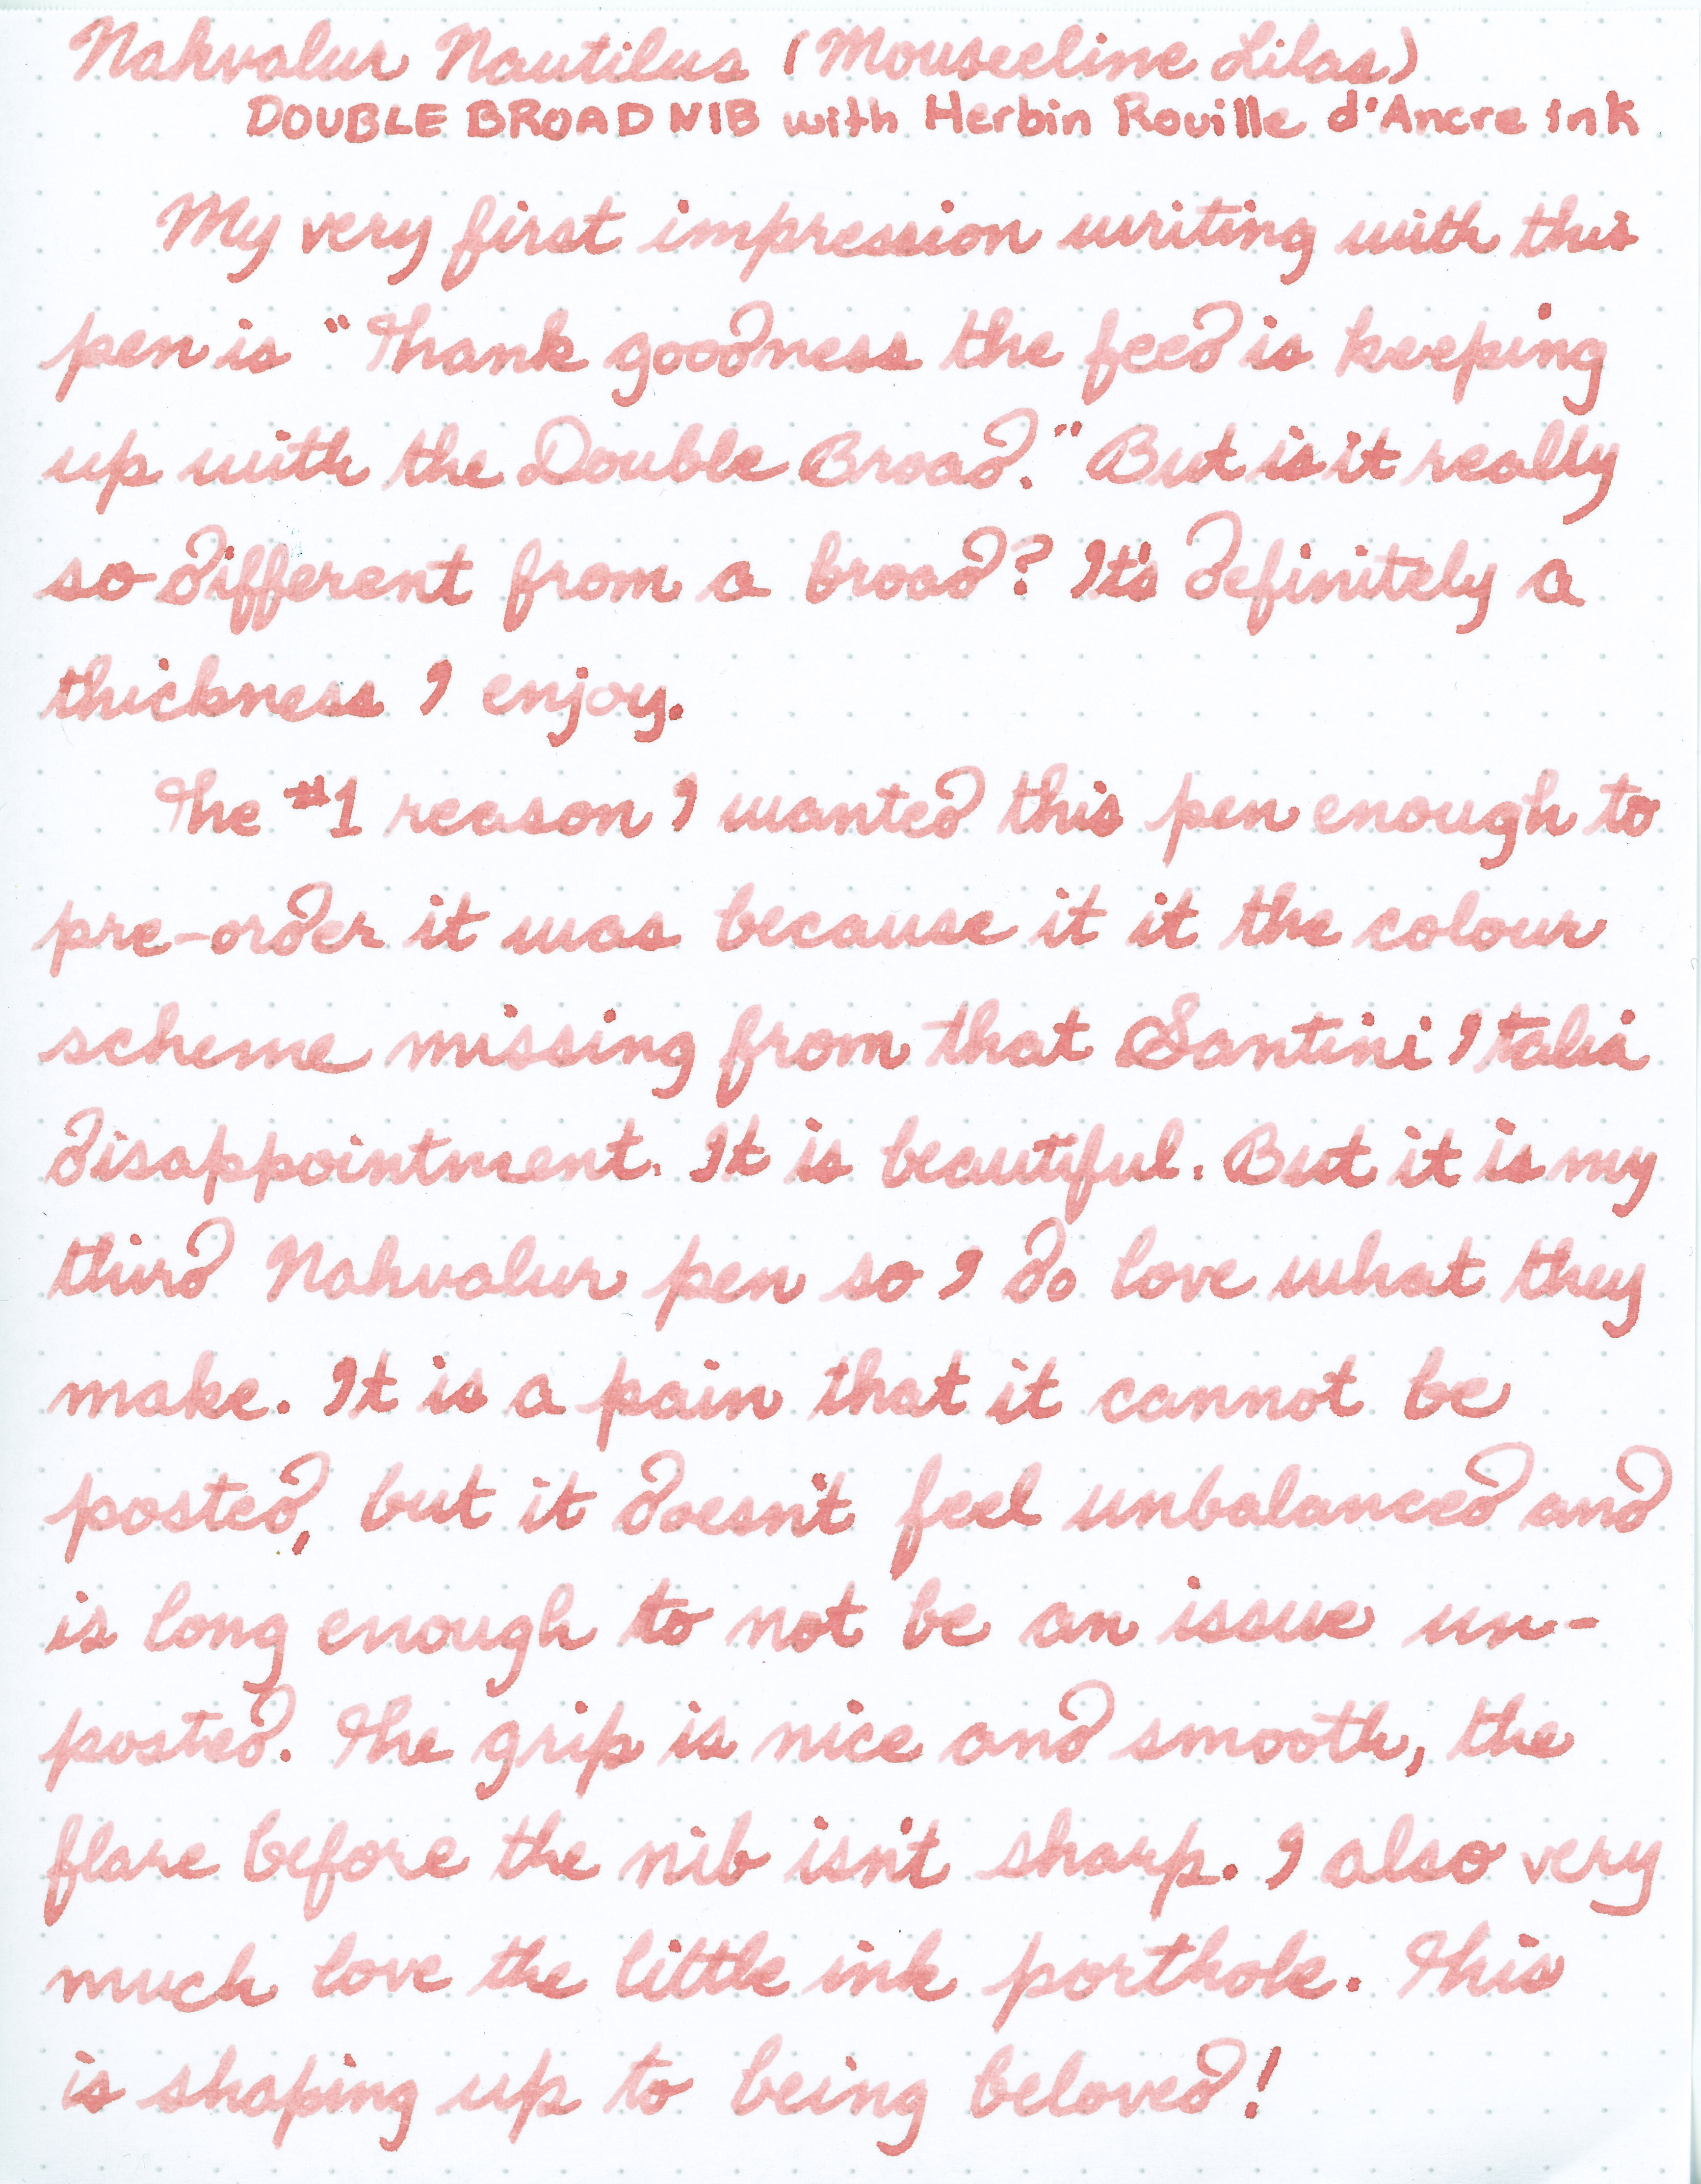 Nahvalur Nautilus (Mousseline Lilas)
DOUBLE BROAD NIB with Herbin Rouille d'Ancre ink
My very first impression writing with this
pen is "Thank goodness the feed is keeping
up with the Double Broad." But is it really
so different from a broad? It's definitely a
thickness I enjoy.
The #1 reason I wanted this pen enough to
pre-order it was because it it the colour
scheme missing from that Santini Italia
disappointment. It is beautiful. But it is my
third Nahvalur pen so I do love what they
make. It is a pain that it cannot be
posted, but it doesn't feel unbalanced and
is long enough to not be an issue un-
posted. The grip is nice and smooth, the
flare before the nib isn't sharp. I also very
much love the little ink porthole. This
is shaping up to being beloved!